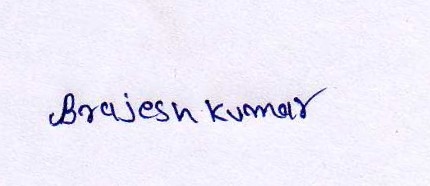 Brajesh Kumar